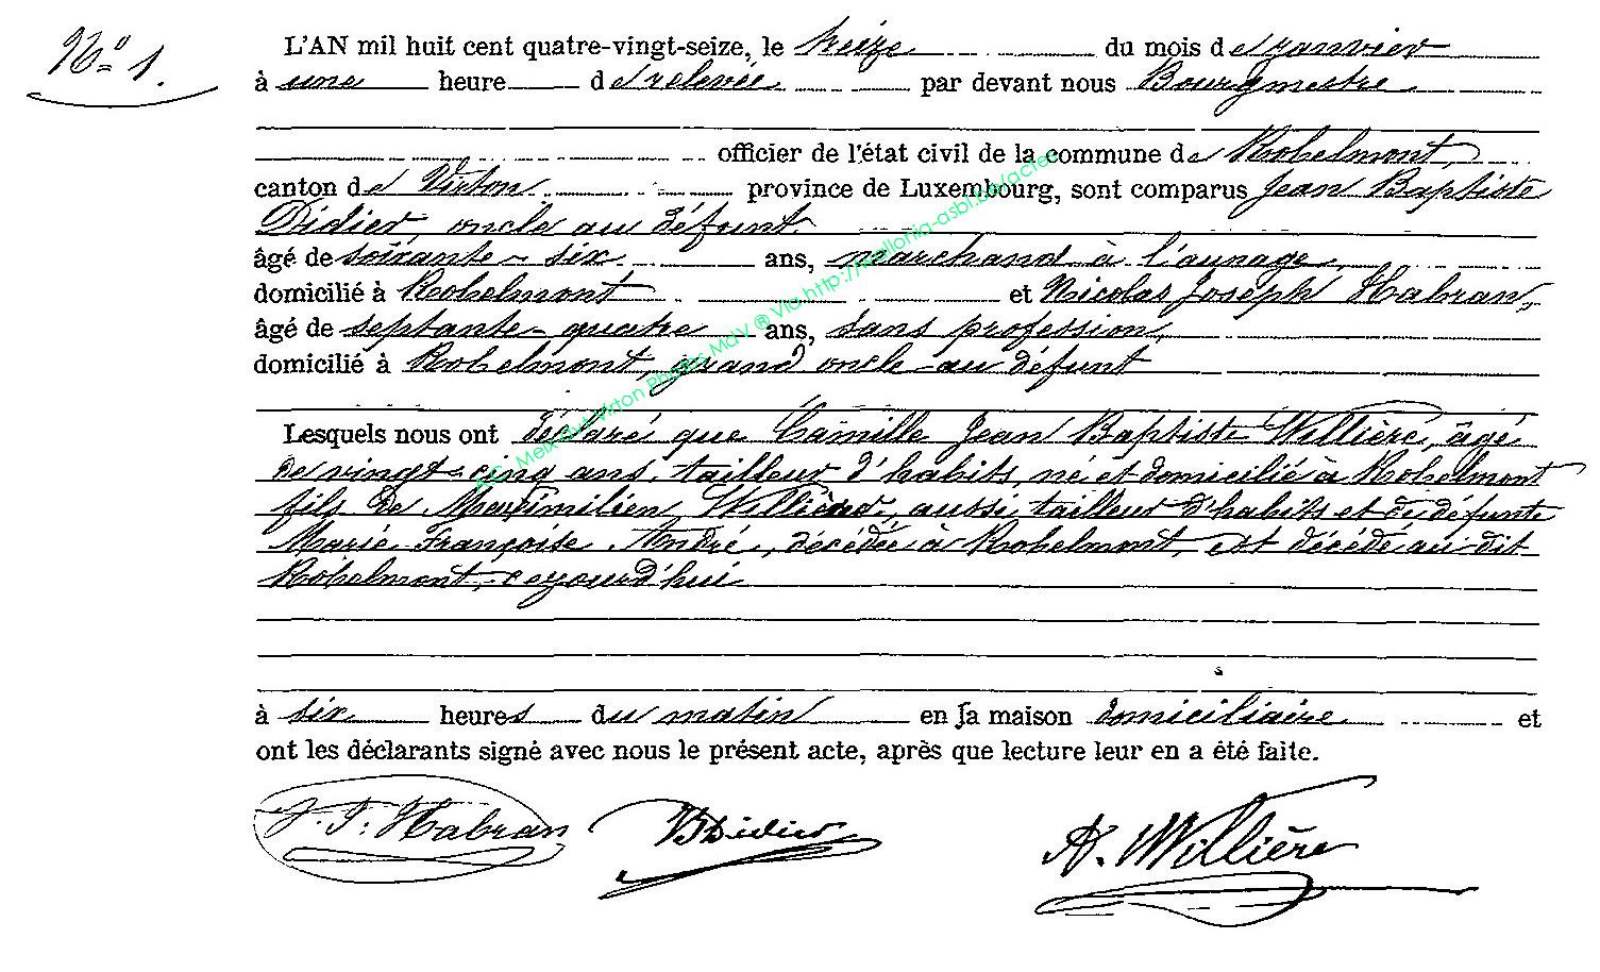 N° 1.
L'AN mil huit cent quatre-vingt-seize, le treize du mois de janvier
à une heure de relevée par devant nous Bourgmestre
officier de l'état civil de la commune de Robelmont,
canton de Virton province de Luxembourg, sont comparus Jean Baptiste
Didier, oncle au défunt
âgé de soixante-six ans, marchand à l'aunage,
domicilié à Robelmont et Nicolas Joseph Habran,
âgé de septante-quatre ans, sans profession,
domicilié à Robelmont, grand oncle au défunt
Lesquels nous ont déclaré que Camille Jean Baptiste Willière, âgé
de vingt-cinq ans, tailleur d'habits, né et domicilié à Robelmont
fils de Maximilien Willière, aussi tailleur d'habits et de défunte
Marie Françoise André, décédée à Robelmont, est décédé au dit
Robelmont, cejourd'hui
à six heures du matin en sa maison domiciliaire et
ont les déclarants signé avec nous le présent acte, après que lecture leur en a été faite.
Habran Didier A. Willière